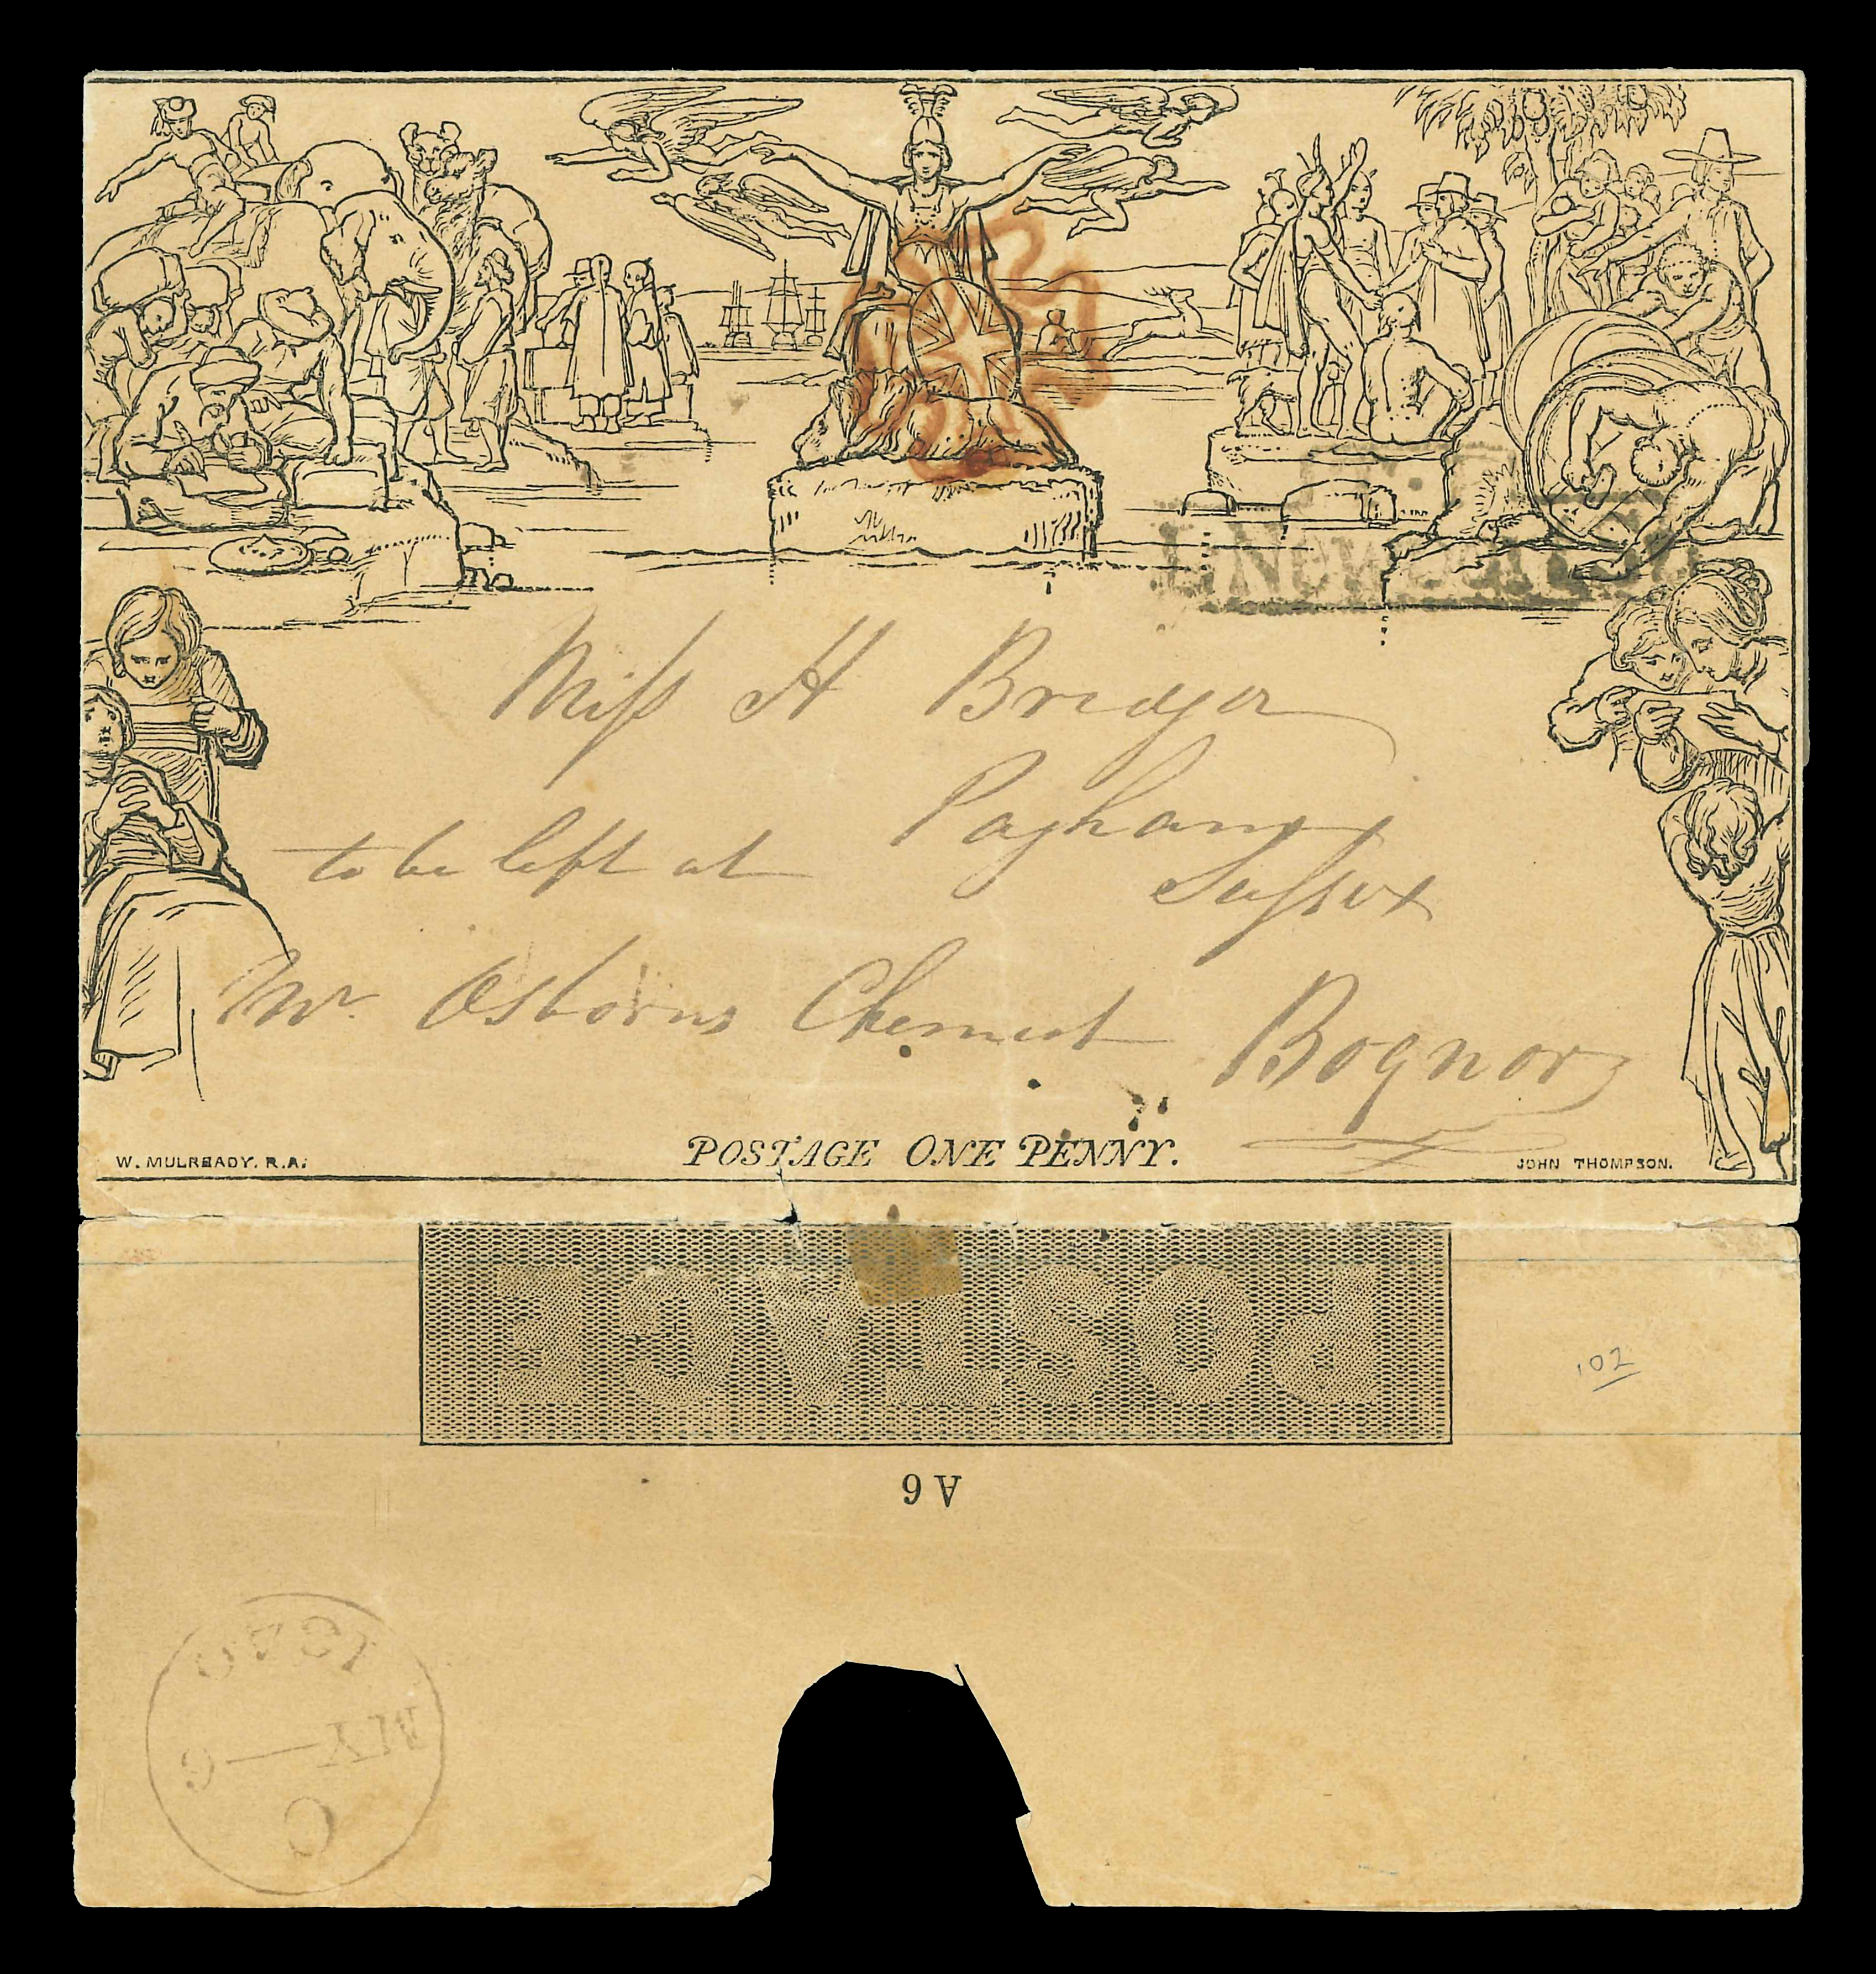 Miss H Bridger
Pagham
Sussex
to be left at
Mr. Osborns Chemist
Bognor
W. MULREADY. R.A.
POSTAGE ONE PENNY.
JOHN THOMPSON.
POSTAGE
A 6
102
C
MY 9
1840